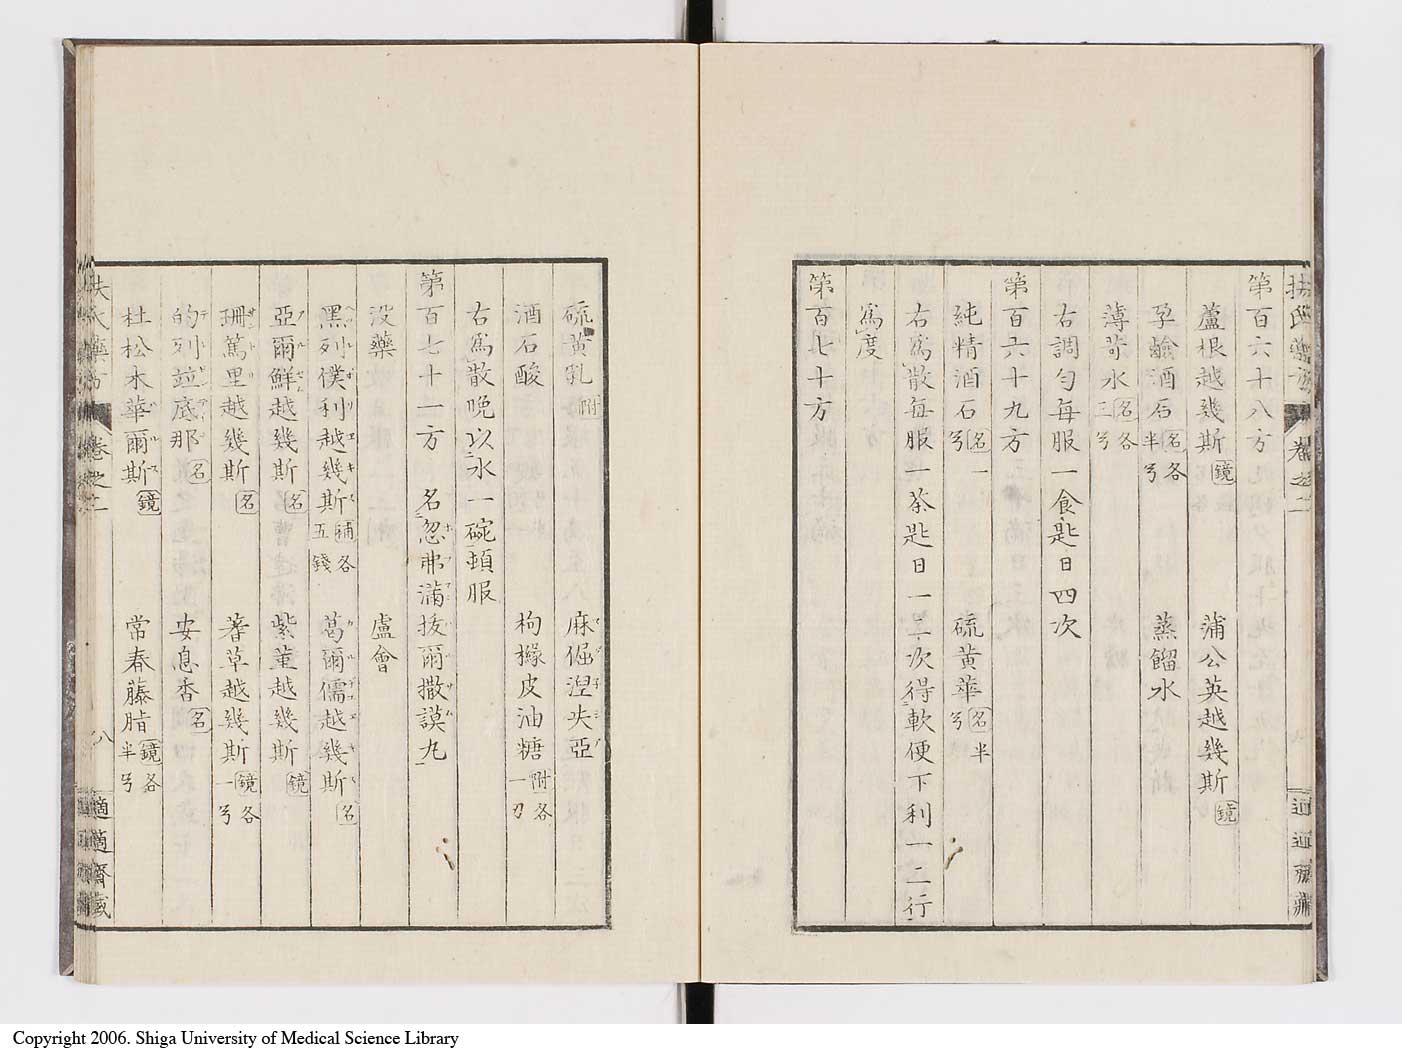 扶氏藥方 卷之二
第百六十八方
蘆根越幾斯 鏡 蒲公英越幾斯 鏡
孕鹸酒石 名各半弓 蒸餾水
薄荷水 名各三弓
右調勻每服一食匙日四次
第百六十九方
純精酒石 名一弓 硫黄華 名半弓
右爲散每服一茶匙日一二次得軟便下利一二行
爲度
第百七十方
硫黄乳 附 麻倔涅失亞
酒石酸 枸櫞皮油糖 附各一刀
右爲散晩以水一碗頓服
第百七十一方 名忽弗滿拔爾撒謨丸
没藥 盧會
黑列僕利越幾斯 補各五錢 葛爾儒越幾斯 名
亞爾鮮越幾斯 名 紫菫越幾斯 鏡
珊篤里越幾斯 名 蓍草越幾斯 鏡各一弓
的列竝底那 名 安息香 名
杜松木華爾斯 鏡 常春藤脂 鏡各半弓
扶氏藥方 卷之二 八 適適齋藏
Copyright 2006. Shiga University of Medical Science Library